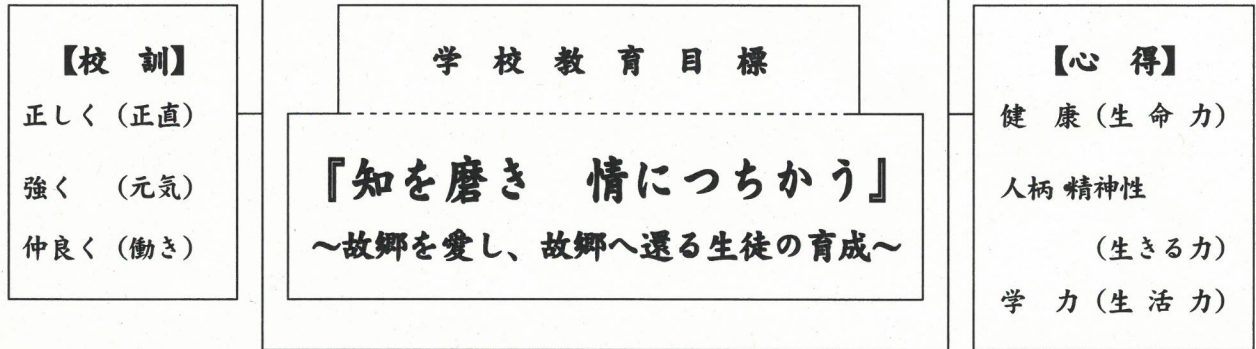 【校 訓】
正しく（正直）
強く （元気）
仲良く（働き）
学 校 教 育 目 標
『知を磨き 情につちかう』
～故郷を愛し、故郷へ還る生徒の育成～
【心 得】
健 康（生 命 力）
人柄 精神性
（生きる力）
学 力（生 活 力）